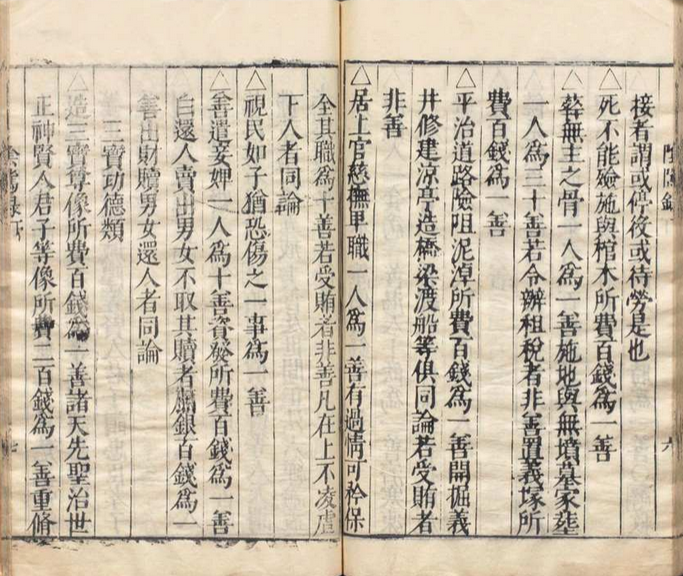 陰隲錄
接者謂或停後或待勞是也
△死不能殮施與棺木所費百錢為一善
△葬無主之骨一人為一善施地與無墳墓家塟
一人為三十善若令辦租稅者非善置義塚所
費百錢為一善
△平治道路險阻泥淖所費百錢為一善開掘義
井修建凉亭造橋梁渡船等俱同論若受賄者
非善
△居上官慈憮卑職一人為一善有過情可衿保
六
全其職為十善若受賄者非善凡在上不凌虐
下人者同論
△視民如子猶恐傷之一事為一善
△善遣妾婢一人為十善資發所費百錢為一善
白還人賣出男女不取其贖者醻銀百錢為一
善出財贖男女還人者同論
三寶功德類
△造三寶尊像所費百錢為一善諸天先聖治世
正神賢人君子等像所費二百錢為一善重脩
七